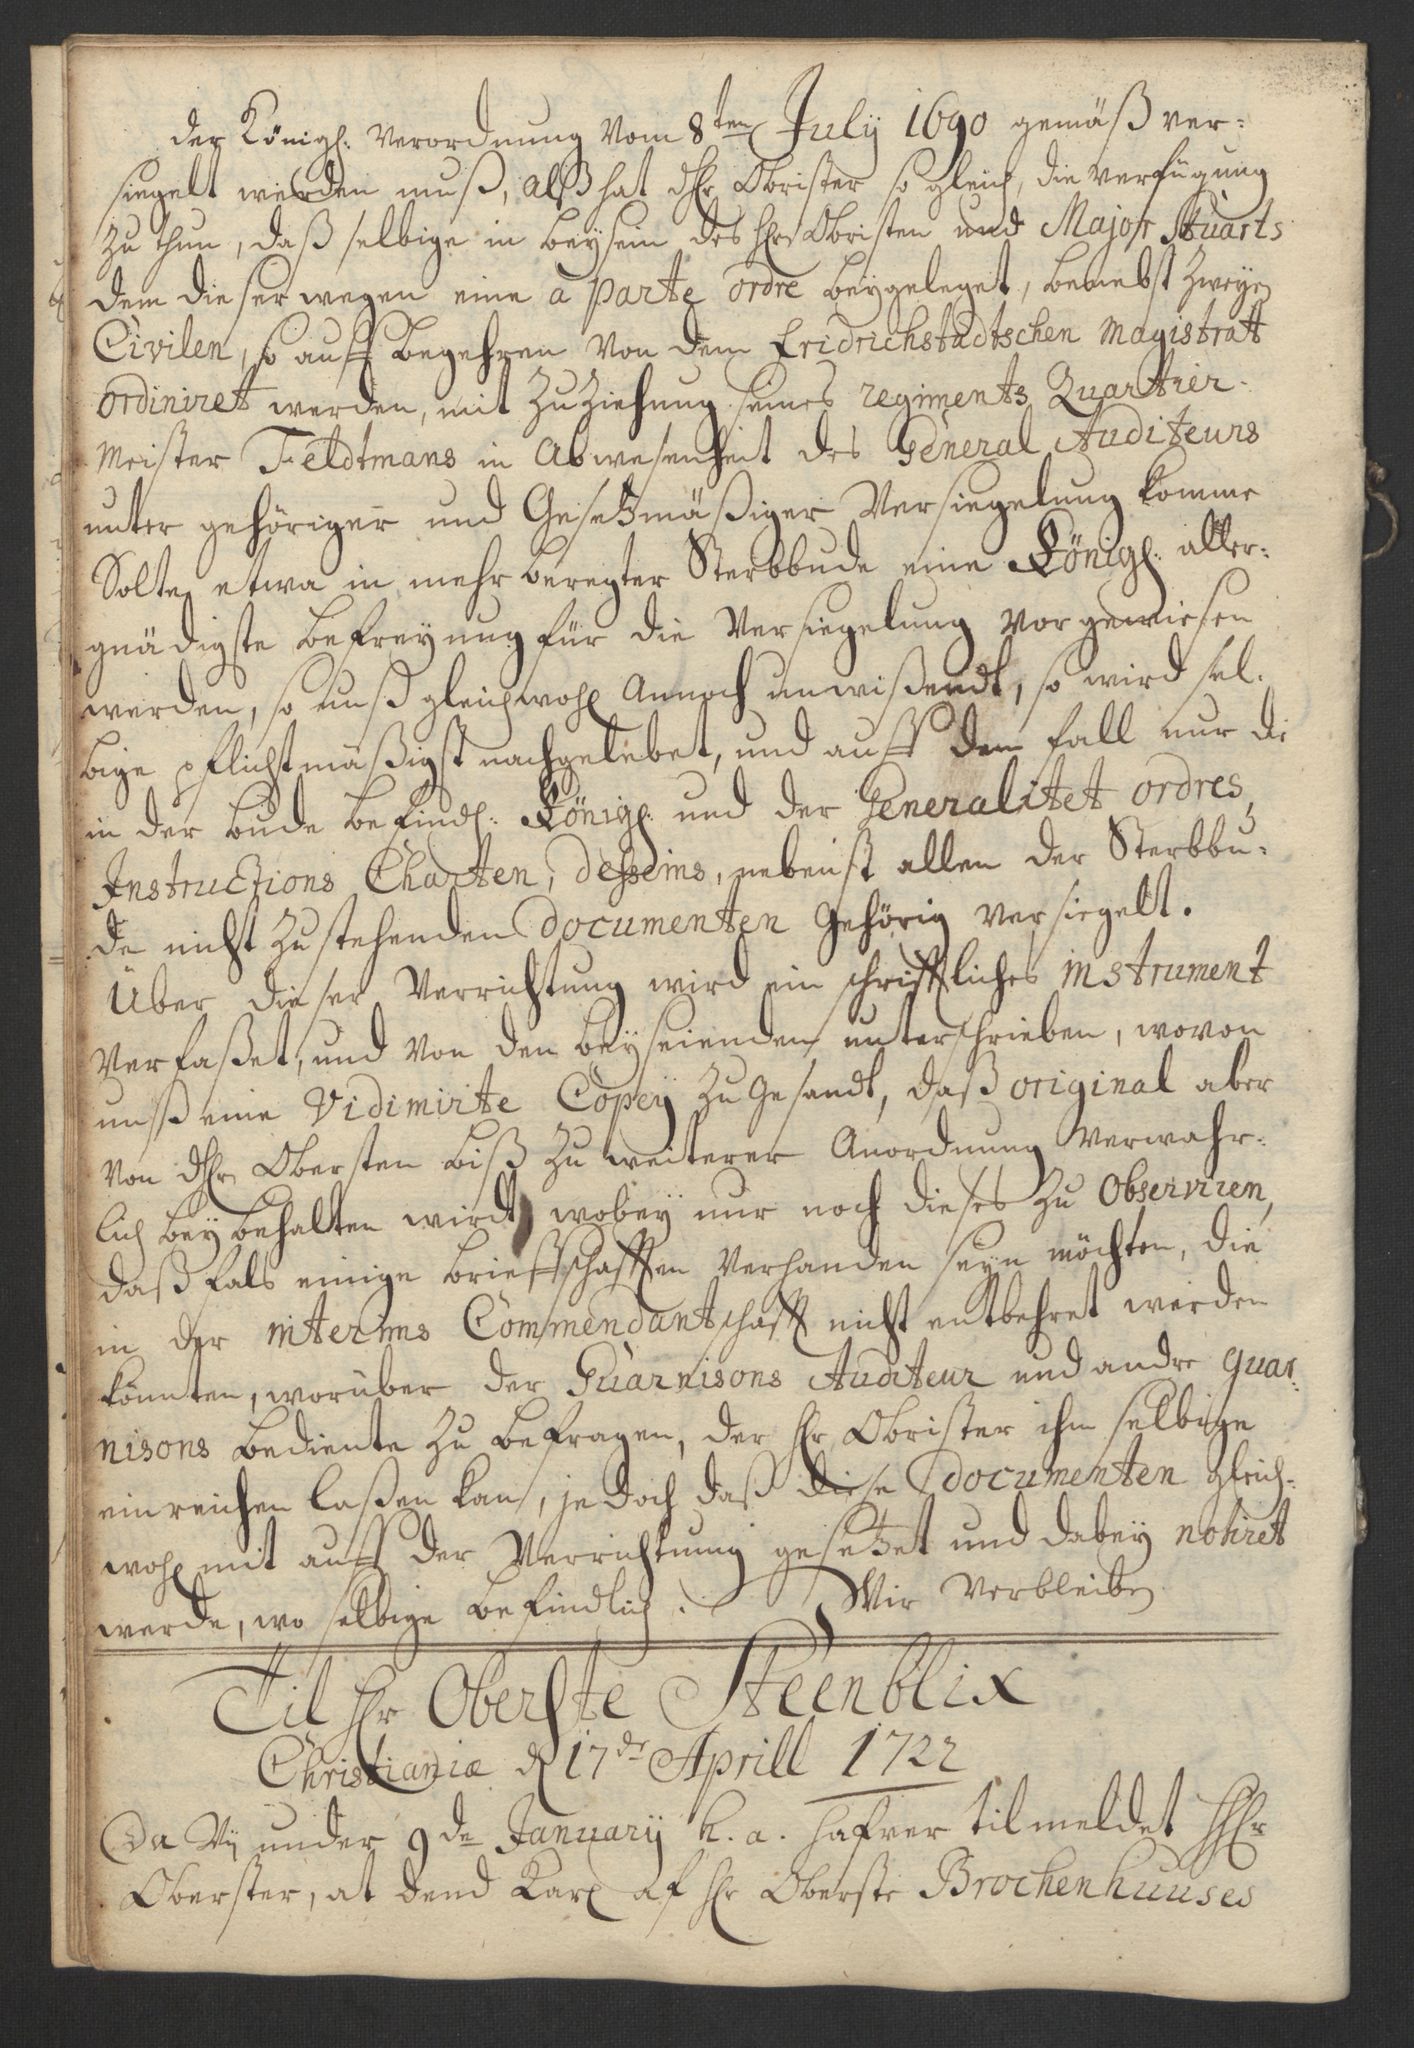 der Königl: Verordnung Vom 8ten July 1690 gemäß ver=
siegelt werden muß, Alß hat dHr Obrister so gleich, die verfügung
zu thun, daß selbige in beysein des Hrn Obristen und Major Stuarts
dem dieserwegen eine a parte ordre beygeleget, benebst zweyen
Civilen, so auff begehren Von dem Fridrichstadtschen Magistratt
ordiniret werden, mit zuziehung seines regiments Quartier-
Meister Feldtmans in Abwesenheit des General Auditeurs
unter gehöriger und Gesetzmäßiger Versiegelung komme
Solte etwa in mehr beregter Sterbbude eine Königl: aller=
gnädigste befreyung für die Versiegelung Vorgewiesen
werden, so unß gleichwohl Annoch unwißendt, so wird sel-
bige pflichtmäßigst nachgelebet, und auff dem fall nur die
in der bude befindl: Königl: und der Generalitet ordres,
Instructions Charten, desseins, nebenst allen der Sterbbu=
de nicht zustehenden Documenten gehörig Versiegelt.
Über dieser Verrichtung wird ein schrifftliches instrument
Verfaßet, und Von den beyseienden unterschrieben, wovon
unß eine Vidimirte Copey zu Gesandt, daß original aber
Von dHrn Obersten biß zu weiterer Anordnung Verwahr=
lich beybehalten wirdt, wobey nur noch dieses zu Observiren,
daß fals einige brieffschafften Verhanden seyn möchten, die
in der interims Commendantschafft nicht entbehret werden
könnten, worüber der Guarnisons Auditeur und andre guar=
nisons bediente zu befragen, der Hr Obrister ihm selbige
einreichen laßen kan, jedoch daß diese Documenten gleich=
wohl mit auff der Verrichtung gesetzet und dabey notiret
werde, wo selbige befindlich. Wir Verbleiben
Til Hr Oberste Steenblix
Christianiæ d 17de Aprill 1722
Da Vy under 9de January h. a. hafver tilmeldet HHr
Oberster, at dend Karl af Hr Oberste Brochenhuuses